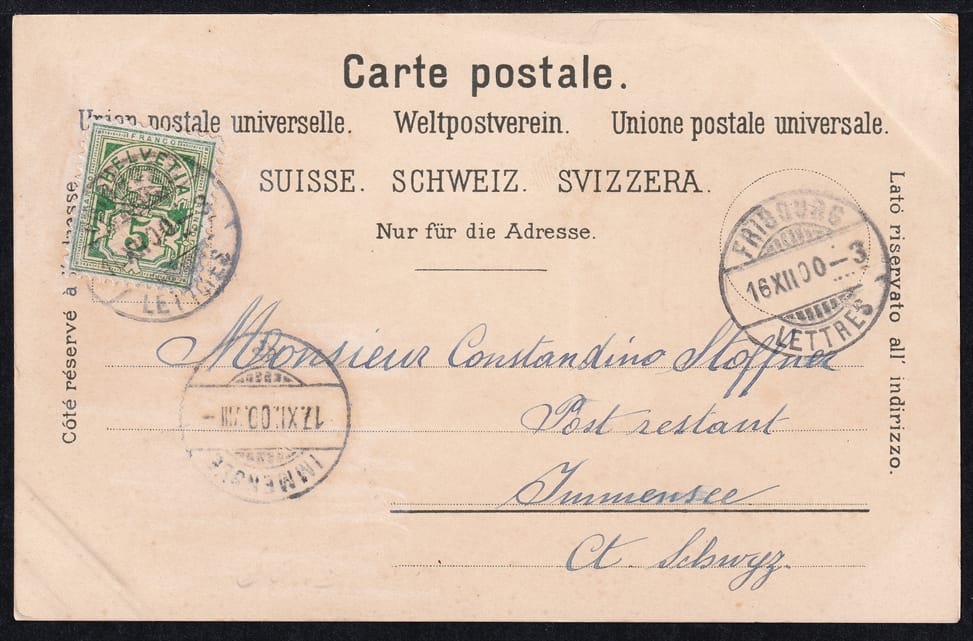 Carte postale.
Union postale universelle. Weltpostverein. Unione postale universale.
SUISSE. SCHWEIZ. SVIZZERA.
Nur für die Adresse.
Côté réservé à
Lato riservato all' indirizzo.
FRANCO
HELVETIA
5
LETTRES
FRIBOURG
16XII00–3
LETTRES
Monsieur Constandino Stoffner
Post restant
Immensee
Ct. Schwyz.
17.XII.00.VIII–
IMMENSEE